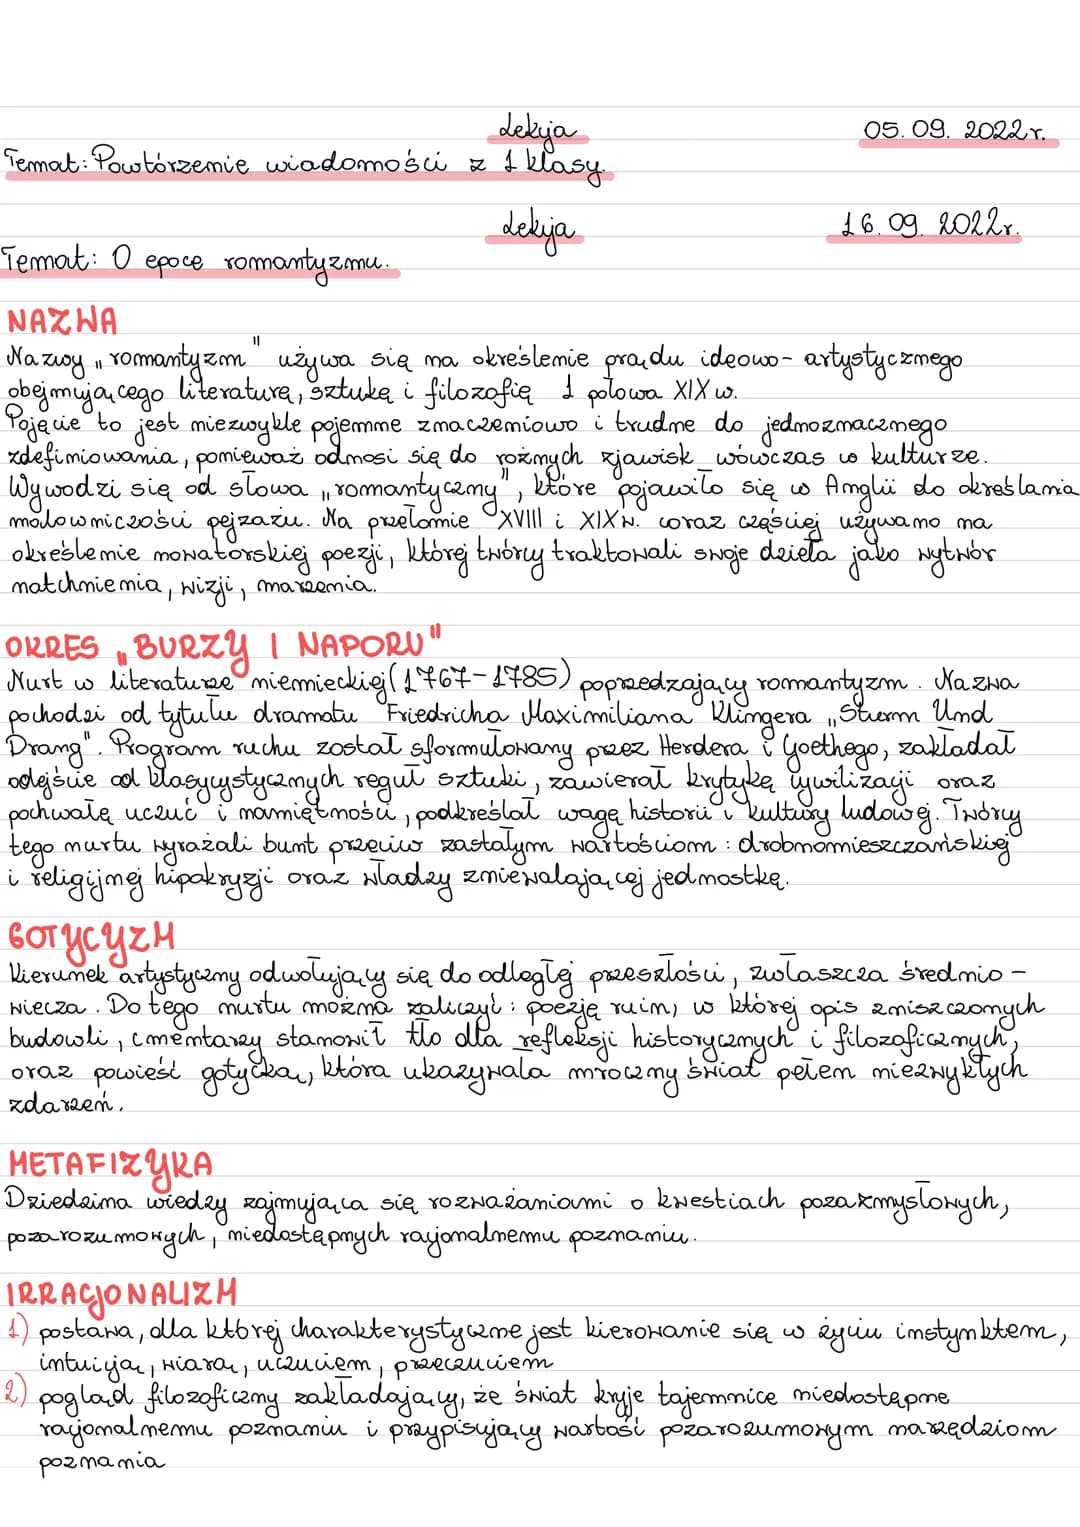 Lekcja 05.09.2022r.
Temat: Powtórzenie wiadomości z 1 klasy.
Lekcja 16.09.2022r.
Temat: O epoce romantyzmu.
NAZWA
Nazwy „romantyzm" używa się na określenie prądu ideowo-artystycznego
obejmującego literaturę, sztukę i filozofię 1 połowa XIX w.
Pojęcie to jest niezwykle pojemne znaczeniowo i trudne do jednoznacznego
zdefiniowania, ponieważ odnosi się do rożnych zjawisk wówczas w kulturze.
Wywodzi się od słowa „romantyczny", które pojawiło się w Anglii do określania
malowniczości pejzażu. Na przełomie XVIII i XIXw. coraz częściej używano na
określenie nowatorskiej poezji, której twórcy traktowali swoje dzieła jako wytwór
natchnienia, wizji, marzenia.
OKRES „BURZY I NAPORU"
Nurt w literaturze niemieckiej (1767-1785) poprzedzający romantyzm. Nazwa
pochodzi od tytułu dramatu Friedricha Maximiliana Klingera „Sturm Und
Drang". Program ruchu został sformułowany przez Herdera i Goethego, zakładał
odejście od klasycystycznych reguł sztuki, zawierał krytykę cywilizacji oraz
pochwałę uczuć i namiętności, podkreślał wagę historii i kultury ludowej. Twórcy
tego nurtu wyrażali bunt przeciw zastałym wartościom: drobnomieszczańskiej
i religijnej hipokryzji oraz władzy zniewalającej jednostkę.
GOTYCYZM
Kierunek artystyczny odwołujący się do odległej przeszłości, zwłaszcza średnio-
wiecza. Do tego nurtu można zaliczyć: poezję ruin, w której opis zniszczonych
budowli, cmentarzy stanowił tło dla refleksji historycznych i filozoficznych,
oraz powieść gotycką, która ukazywała mroczny świat pełen niezwykłych
zdarzeń.
METAFIZYKA
Dziedzina wiedzy zajmująca się rozważaniami o kwestiach pozazmysłowych,
pozarozumowych, niedostępnych racjonalnemu poznaniu.
IRRACJONALIZM
1) postawa, dla której charakterystyczne jest kierowanie się w życiu instynktem,
intuicją, wiarą, uczuciem, przeczuciem
2) pogląd filozoficzny zakładający, że świat kryje tajemnice niedostępne
racjonalnemu poznaniu i przypisujący wartość pozarozumowym narzędziom
poznania